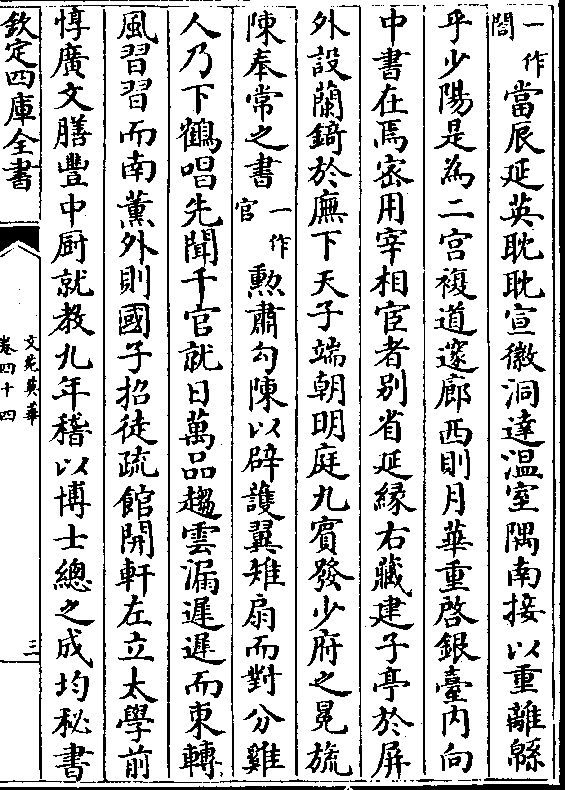 一作閤當扆延英耽耽宣徽洞達溫室隅南接以重離緜
乎少陽是為二宮複道邃廊西則月華重啓銀臺内向
中書在焉宻用宰相宦者别省延縁右藏建子亭於屏
外設蘭錡於廡下天子端朝明庭九賓發少府之冕旒
陳奉常之書一作官勲肅勾陳以辟護翼雉扇而對分雞
人乃下鶴唱先聞千官就日萬品趨雲漏遲遲而東轉
風習習而南薫外則國子招徒疏館開軒左立太學前
惇廣文膳豐中厨就教九年稽以博士總之成均秘書
欽定四庫全書
文苑英華
卷四十四
三